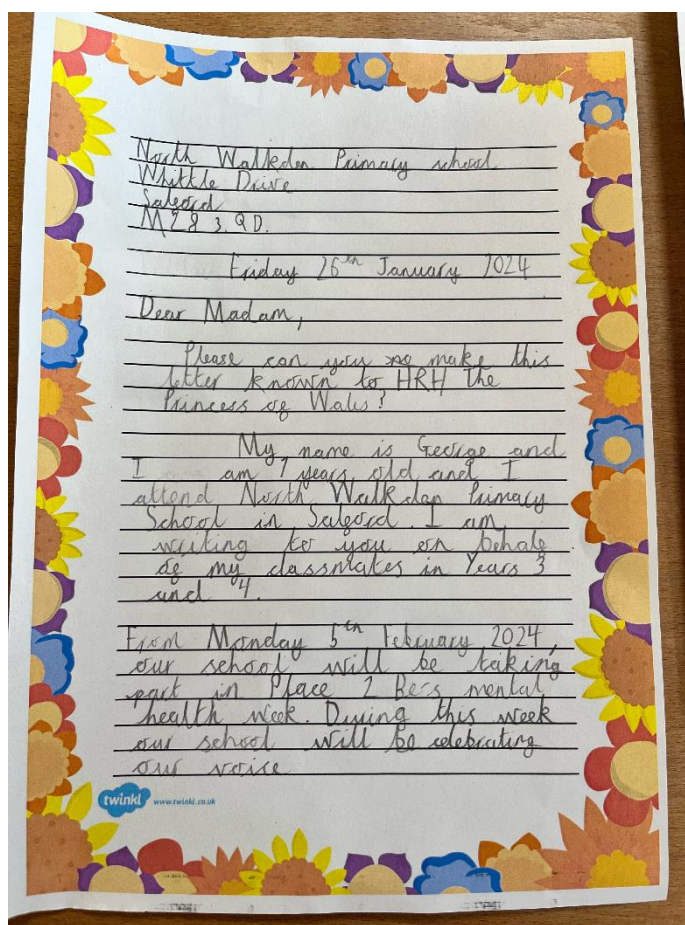 North Walkden Primary school
Whittle Drive
Salford
M28 3.QD.
Friday 26th January 2024
Dear Madam,
Please can you make this
letter known to HRH The
Princess of Wales?
My name is George and
I am 7 years old and I
attend North Walkden Primary
School in Salford. I am
writing to you on behale
of my classmates in Years 3
and 4.
From Monday 5th February 2024,
our school will be taking
part in Place 2 Be's mental
health week. During this week
our school will be celebrating
our voice
twinkl www.twinkl.co.uk